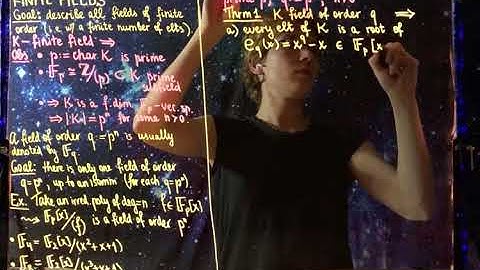 FINITE FIELDS
Goal: describe all fields of finite
order (i.e. w/ a finite number of elts).
K – finite field ⇒
Obs • p := char K is prime
• ⇒ 𝔽p ≅ ℤ/p ⊂ K prime
subfield
• ⇒ K is a f.dim 𝔽p-vec.
• ⇒ |K| = pⁿ for some n>0.
A field of order q=pⁿ is usually
denoted by 𝔽q
Goal: there is only one field of order
q=pⁿ, up to an isomm (for each q=pⁿ).
Ex. Take an irred. poly of deg=n : f∈𝔽p[x]
⇝ 𝔽p[x]/(f) is a field of order pⁿ
• 𝔽4 = 𝔽2[x]/(x²+x+1)
= 𝔽2[x]/(x³+x+1)
Thrm 1 K field of order q ⇒
a) every elt of K is a root of
(x) = x^q – x ∈ 𝔽p[x